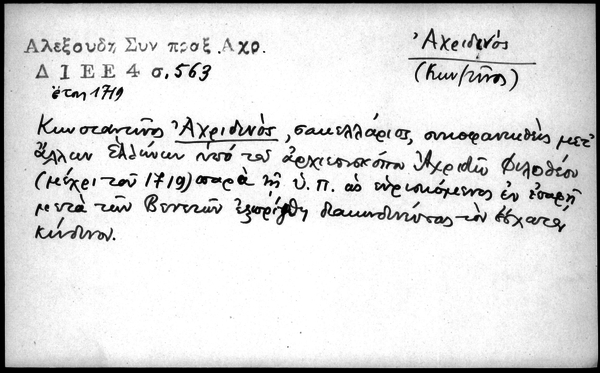 Αλεξουδη Συν προξ. Αχρ.
Δ Ι Ε Ε 4 σ. 563
ἔτος 1719
Ἀχριδινός
(Κων/τῖνος)
Κωνσταντῖνος Ἀχριδινός, σακελλάριος, συκοφαντηθεὶς μετ'
ἄλλων Ἑλλήνων ὑπό τοῦ ἀρχιεπισκόπου Ἀχριδῶν Φιλοθέου
(μέχρι τοῦ 1719) παρὰ τῇ Ὑ. Π. ὡς εὑρισκόμενος ἐν ἐπαφῇ
μετὰ τῶν Βενετῶν ἐξωρίσθη διακινδυνεύσας τὸν ἔσχατον
κίνδυνον.